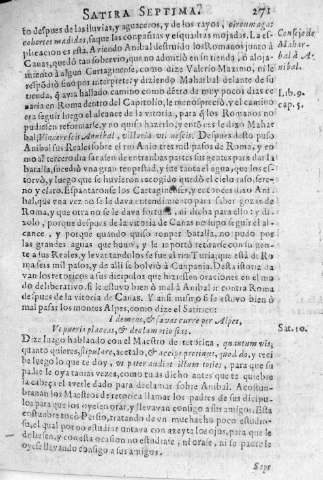 SATIRA SEPTIMA? 271
to despues de las lluvias, y aguaceros, y de los rayos, circumagat
cohortes madidas, saque las compañias y esquadras mojadas. La es-
plicacion es esta. Aviendo Anibal destruido los Romanos junto à
Canas, quedó tan sobervio, que no admitió en su tienda, ni à aloja-
miento à algun Cartaginense, como dize Valerio Maximo, ni le
respondió sino por interprete; y diziendo Maharbal delante de su
tienda, que avia hallado camino como dentro de muy pocos dias ce-
naria en Roma dentro del Capitolio, le menospreció, y el camino
era seguir luego el alcance de la vitoria, para que los Romanos no
pudiesen reformarse, y no quiso hazerlo, y entonces dixo Mahar-
bal: Vincere scis Annibal, victoria uti nescis. Despues desto puso
Anibal sus Reales sobre el rio Anio tres mil pasos de Roma, y en-
do al tercero dia à salir de entrambas partes sus gentes para dar la
batalla, sucedió una gran tempestad, y fue tanta el agua, que los es-
torvò, y luego que se huvieron recogido quedò el cielo raso, sere-
no y claro. Espantaronse los Cartagineses, y entonces dixo Ani-
bal, que una vez no se le dava entendimiento para saber gozar de
Roma, y que otra no se le dava fortuna, ni dicha para ello: y di-
zolo, porque despues de la vitoria de Canas no supo seguir el al-
cance, y porque quando quiso romper batalla, no pudo por
las grandes aguas que huvo, y le importò retirarse con su gen-
te à sus Reales, y levantandolos se fue al rio Turia, que está de Ro-
ma seis mil pasos, y de alli se bolviò à Campania. Desta historia da
van los retoricos à sus dicipulos que hiziesen oraciones en el mo-
do deliberativo, si le estuvo bien ò mal à Anibal ir contra Roma
despues de la vitoria de Canas. Y ansi mismo si le estuvo bien ò
mal pasar los montes Alpes, como dize el Satirico:
I demens, & sævas curre per Alpes,
Ut pueris placeas, & declamatio fias.
Dize luego hablando con el Maestro de retorica, quantum vis,
quanto quieres, stipulare, acetalo, & accipe protinus, quod do, y reci
be luego lo que te doy, ut pater audiat illum toties, para que su pa-
dre le oya tantas vezes, como tu as dicho antes que te quiebre
la cabeça el averle dado para declamar sobre Anibal. Acostum-
bran los Maestros de retorica llamar los padres de sus dicipu-
los para que los oyesen orar, y llevavan consigo à sus amigos. Esta
costumbre tocò Persio, tratando de un muchacho poco estudio-
so, el qual por no estudiar untava con azeyte los ojos, para que le
doliesen, y con esta ocasion no estudiase, ni orase, ni su padre le
oyese llevando consigo à sus amigos.
Sepe
Consejo de
Mahar-
bal à A-
nibal.
Lib. 9.
cap. 5.
Sat. 10.